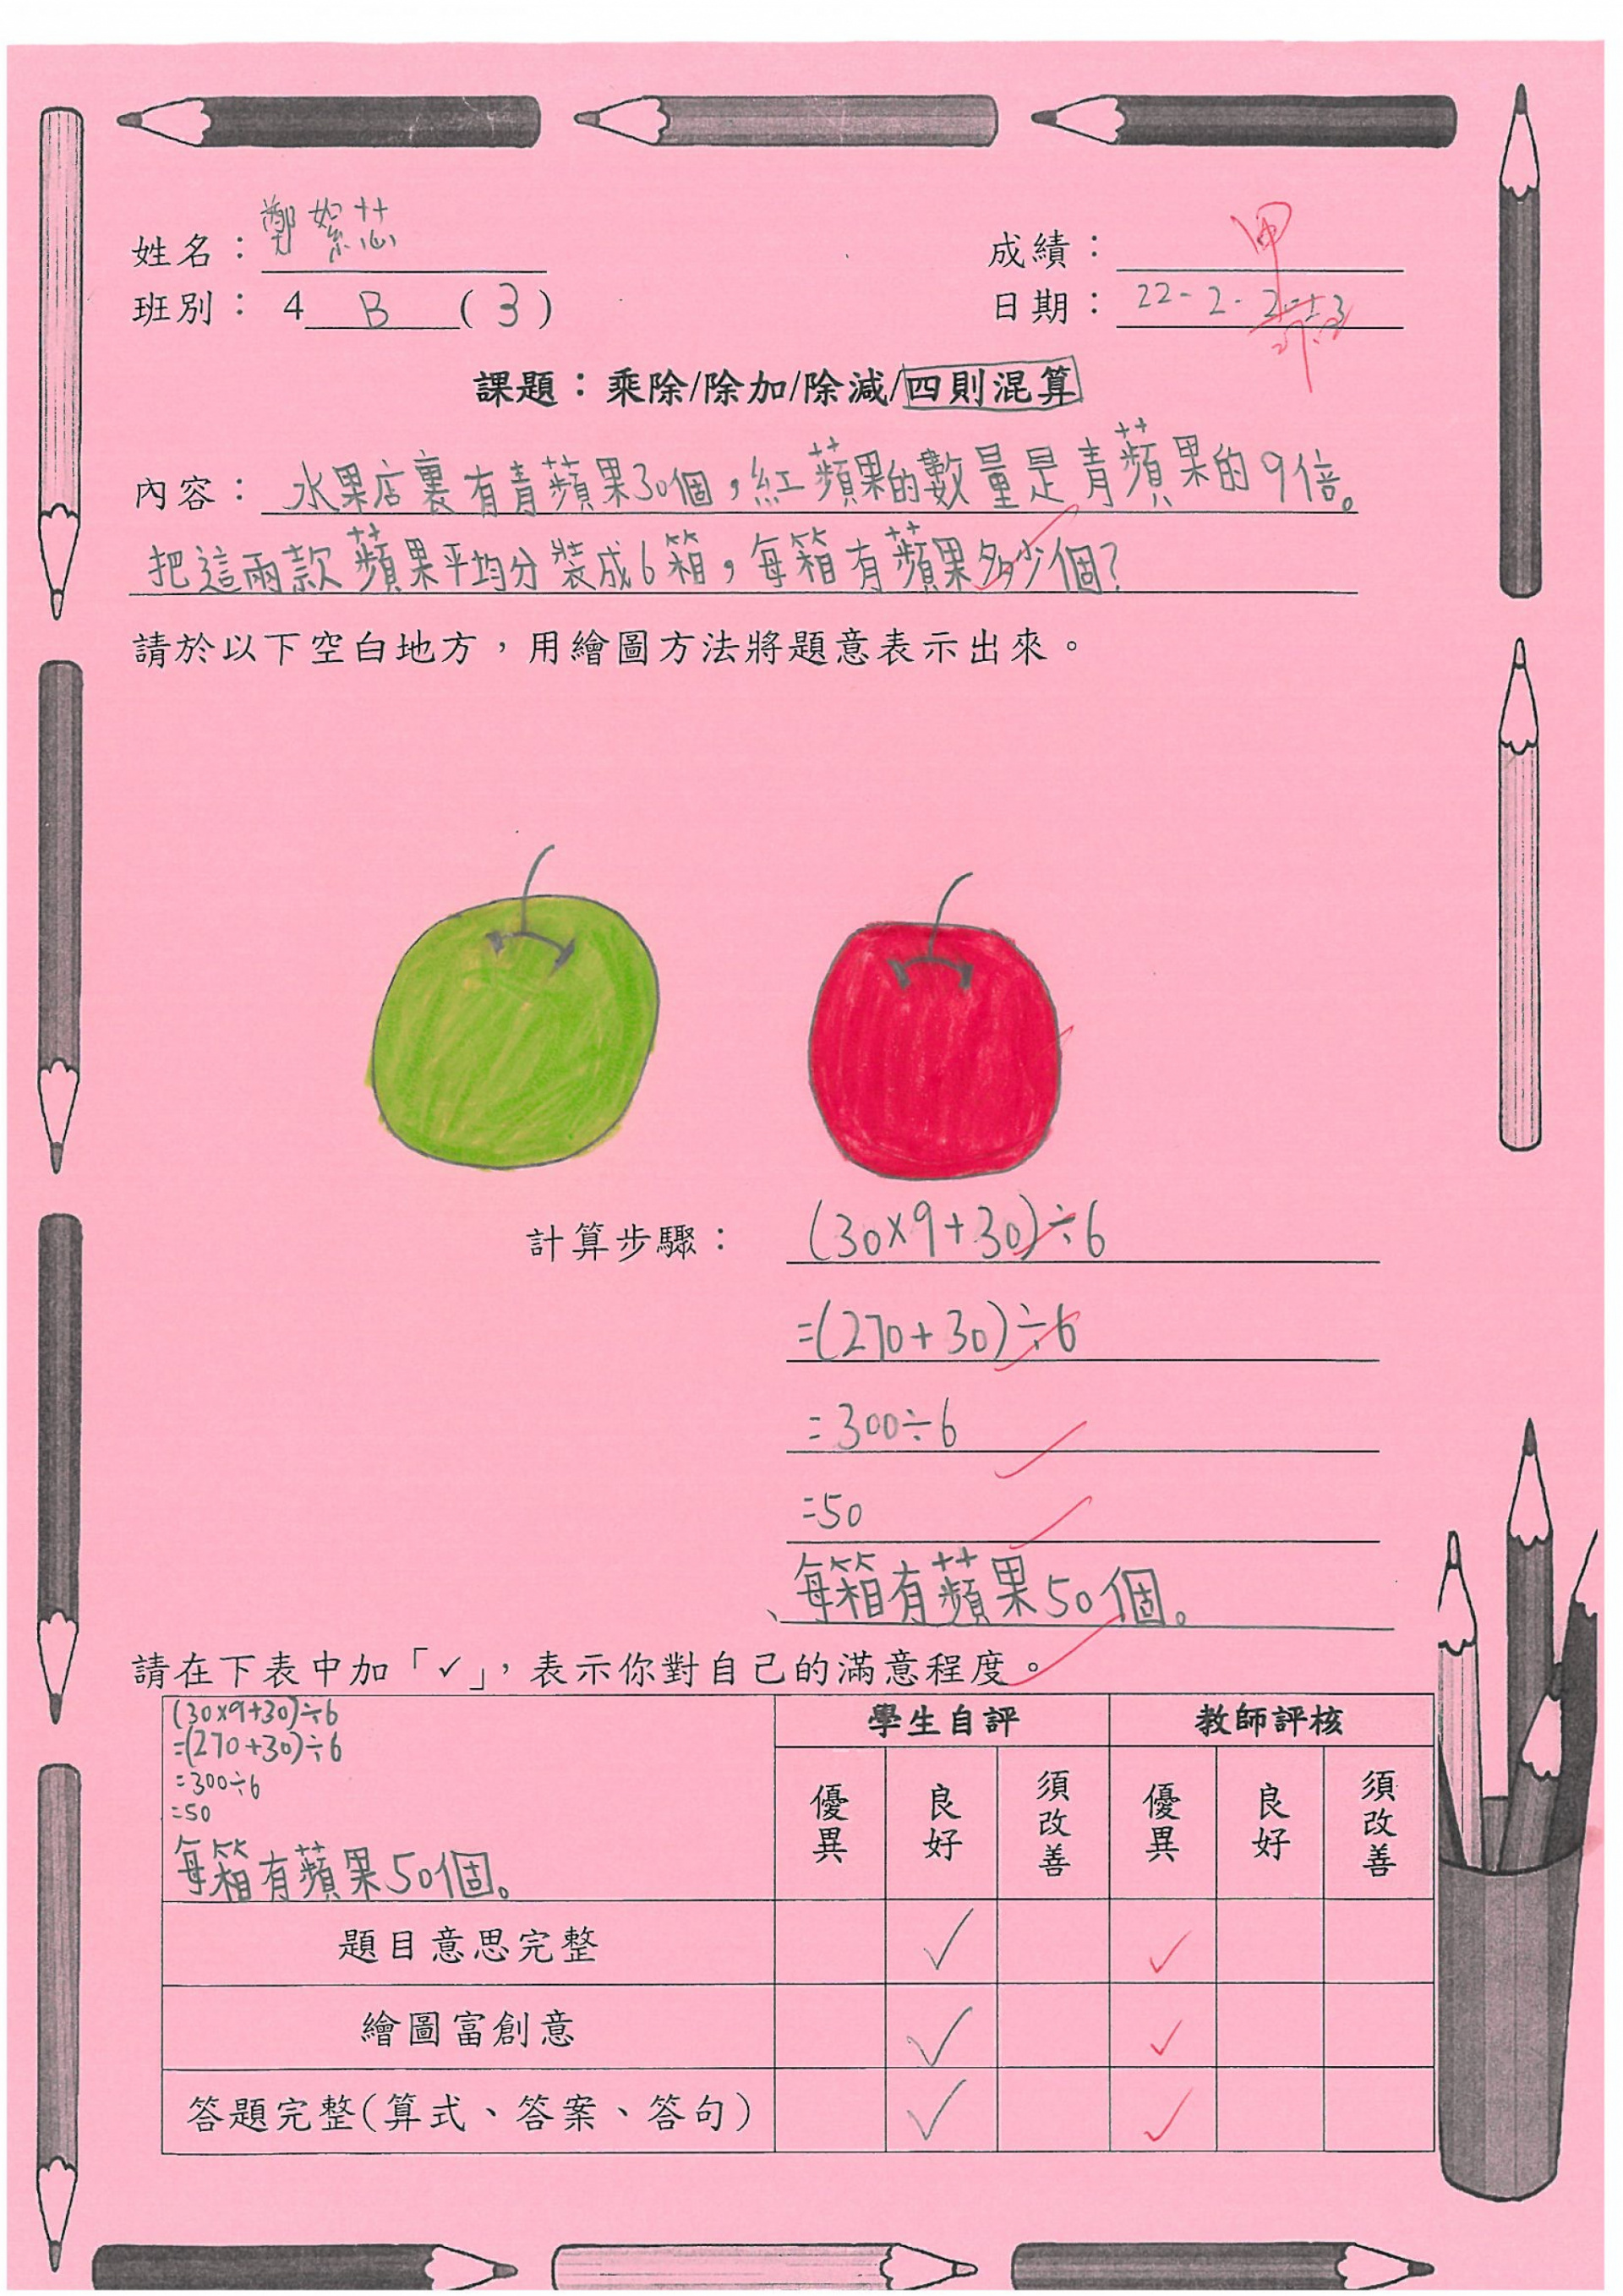 姓名：鄭絮芯
成績：甲
班別：4 B (3)
日期：22-2-
課題：乘除/除加/除減/四則混算
內容：水果店裏有青蘋果30個，紅蘋果的數量是青蘋果的9倍。
把這兩款蘋果平均分裝成6箱，每箱有蘋果多少個?
請於以下空白地方，用繪圖方法將題意表示出來。
計算步驟：(30×9+30)÷6
=(270+30)÷6
=300÷6
=50
每箱有蘋果50個。
請在下表中加「✓」，表示你對自己的滿意程度。
(30×9+30)÷6
=(270+30)÷6
=300÷6
=50
每箱有蘋果50個。
學生自評 教師評核
優異 良好 須改善 優異 良好 須改善
題目意思完整 ✓ ✓
繪圖富創意 ✓ ✓
答題完整(算式、答案、答句) ✓ ✓